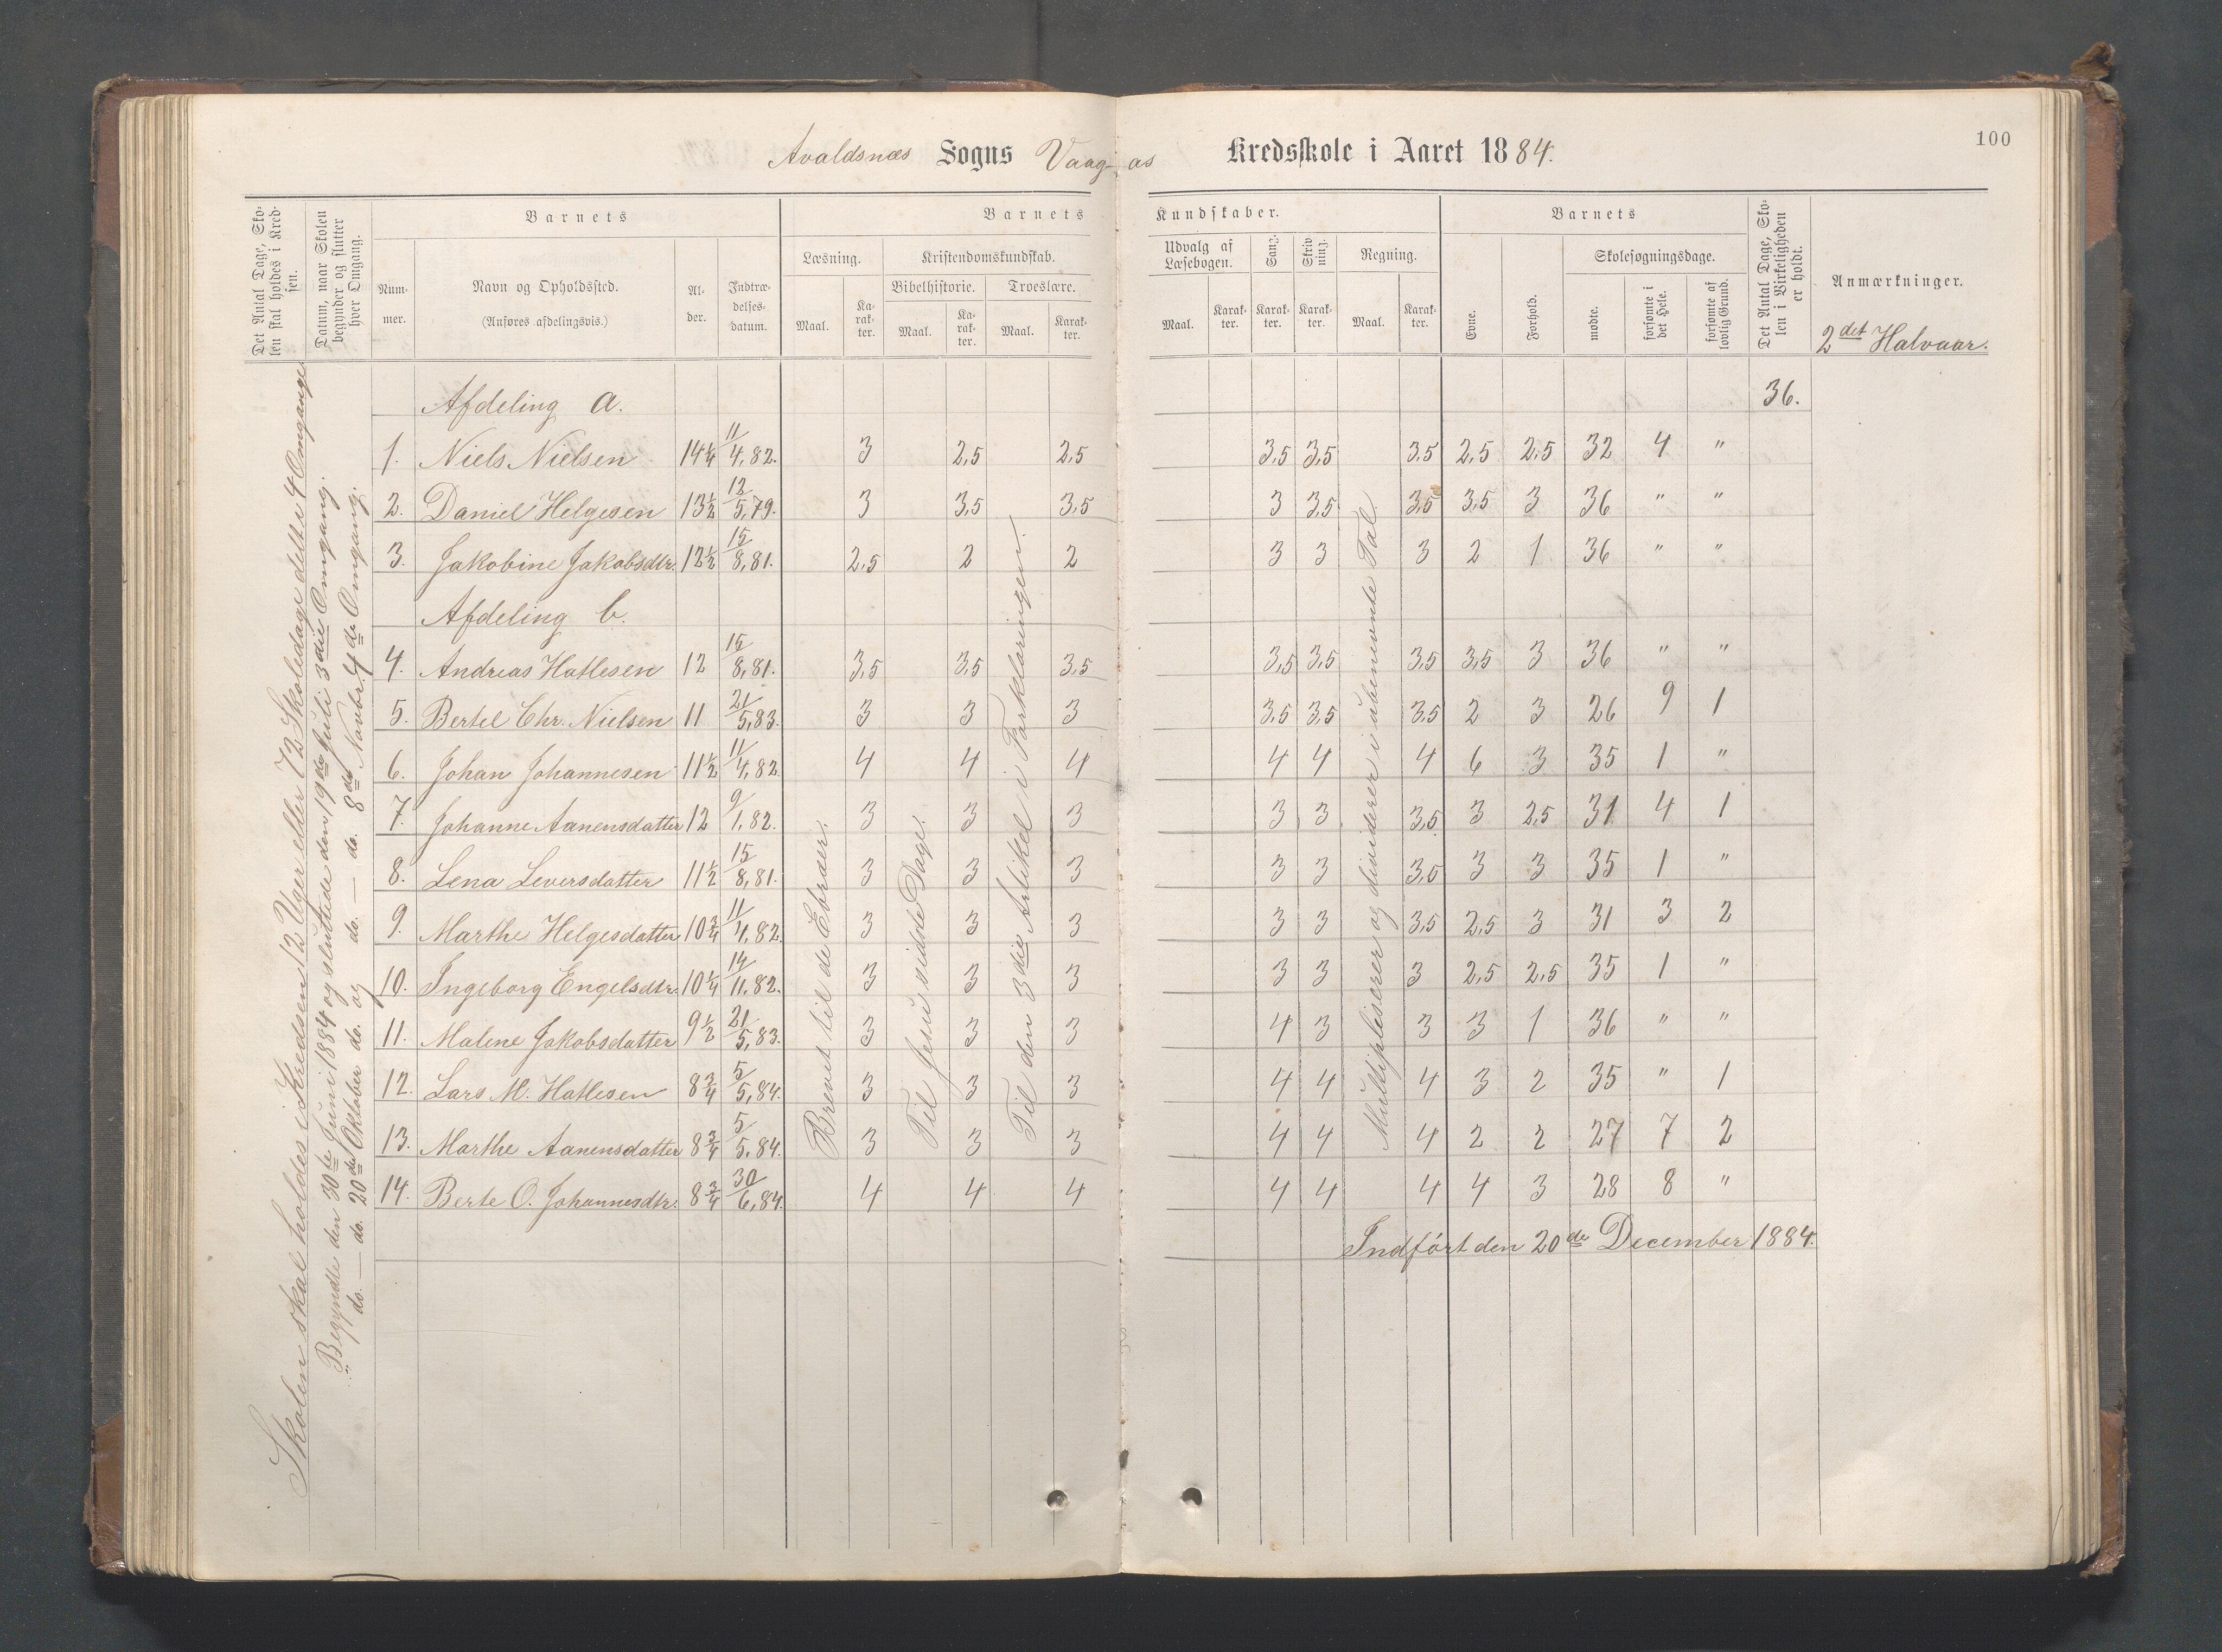 100
Avaldsnæs Sogns Vaag- as Kredsskole i Aaret 1884.
Det Antal Dage, Sko-
len skal holdes i Kred-
sen.
Datum, naar Skolen
begynder og slutter
hver Omgang.
Barnets
Num-
mer.
Navn og Opholdssted.
(Anføres afdelingsvis.)
Al-
der.
Indtræ-
delses-
datum.
Barnets Kundskaber.
Læsning.
Maal.
Ka-
rak-
ter.
Kristendomskundskab.
Bibelhistorie.
Maal.
Ka-
rak-
ter.
Troeslære.
Maal.
Karak-
ter.
Udvalg af
Læsebogen.
Maal.
Karak-
ter.
Sang.
Karak-
ter.
Skriv
ning.
Karak-
ter.
Regning.
Maal.
Karak-
ter.
Barnets
Evne.
Forhold.
Skolesøgningsdage.
mødte.
forsømte i
det Hele.
forsømte af
lovlig Grund.
Det Antal Dage, Sko-
len i Virkeligheden
er holdt.
Anmærkninger.
2det Halvaar.
Skolen skal holdes i Kredsen 12 Uger eller 72 Skoledage delt i 4 Omgange
Begyndte den 30te Juni 1884 og sluttede den 19de Juli 3die Omgang.
do. — do. 20de Oktober do. og do. — do. 8de Novbr. 4de Omgang.
Afdeling a. 36.
1. Niels Nielsen 14 1/4 11/4,82. 3 2,5 2,5 3,5 3,5 3,5 2,5 2,5 32 4 "
2. Daniel Helgesen 13 1/2 12/5,79. 3 3,5 3,5 3 3,5 3,5 3,5 3 36 " "
3. Jakobine Jakobsdtr. 12 1/2 15/8,81. 2,5 2 2 3 3 3 2 1 36 " "
Afdeling b.
4. Andreas Hatlesen 12 15/8,81. 3,5 3,5 3,5 3,5 3,5 3,5 3,5 3 36 " "
5. Bertel Chr. Nielsen 11 21/5,83. 3 3 3 3,5 3,5 3,5 2 3 26 9 1
6. Johan Johannesen 11 1/2 11/4,82. 4 4 4 4 4 4 6 3 35 1 "
7. Johanne Aanensdatter 12 9/1,82. 3 3 3 3 3 3,5 3 2,5 31 4 1
8. Lena Leversdatter 11 1/2 15/8,81. 3 3 3 3 3 3,5 3 3 35 1 "
9. Marthe Helgesdatter 10 3/4 11/4,82. 3 3 3 3 3 3,5 2,5 3 31 3 2
10. Ingeborg Engelsdtr. 10 1/4 14/11,82. 3 3 3 3 3 3 2,5 2,5 35 1 "
11. Malene Jakobsdatter 9 1/2 21/5,83. 3 3 3 4 3 3 3 1 36 " "
12. Lars M. Hatlesen 8 3/4 5/5,84. 3 3 3 4 4 4 3 2 35 " 1
13. Marthe Aanensdatter 8 3/4 5/5,84. 3 3 3 4 4 4 2 2 27 7 2
14. Berte O. Johannesdtr. 8 3/4 30/6,84. 4 4 4 4 4 4 4 3 28 8 "
Brevet til de Ebræer.
Til Jesu sidste Dage.
Til den 3die Artikel i Forklaringen.
Multipliserer og dividerer i ubenevnte Tal.
Indført den 20de December 1884.